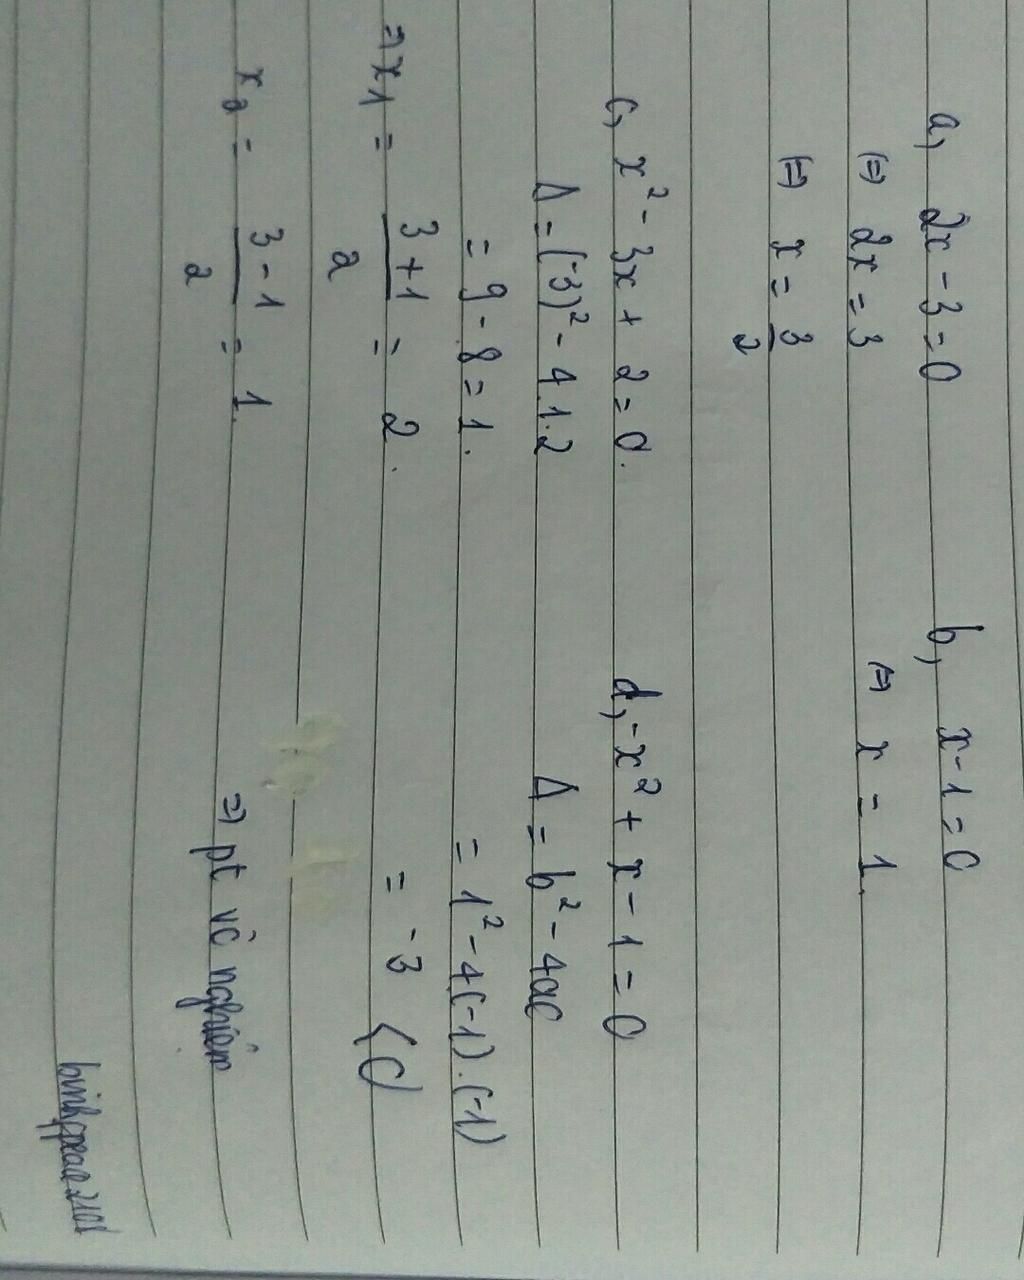 a, 2x - 3 = 0
(=) 2x = 3
(=) x = 3/2
b, x - 1 = 0
(=) x = 1.
c, x² - 3x + 2 = 0.
Δ = (-3)² - 4.1.2
= 9 - 8 = 1.
=) x₁ = (3 + 1)/2 = 2.
x₂ = (3 - 1)/2 = 1.
d, -x² + x - 1 = 0
Δ = b² - 4ac
= 1² - 4(-1).(-1)
= -3 < 0
=) pt vô nghiệm